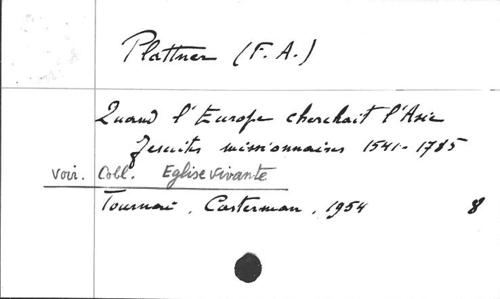 Plattner (F. A.)
Quand l'Europe cherchait l'Asie
Jesuites missionnaires 1541-1785
voir. Coll. Eglise vivante
Tournai, Casterman, 1954 8